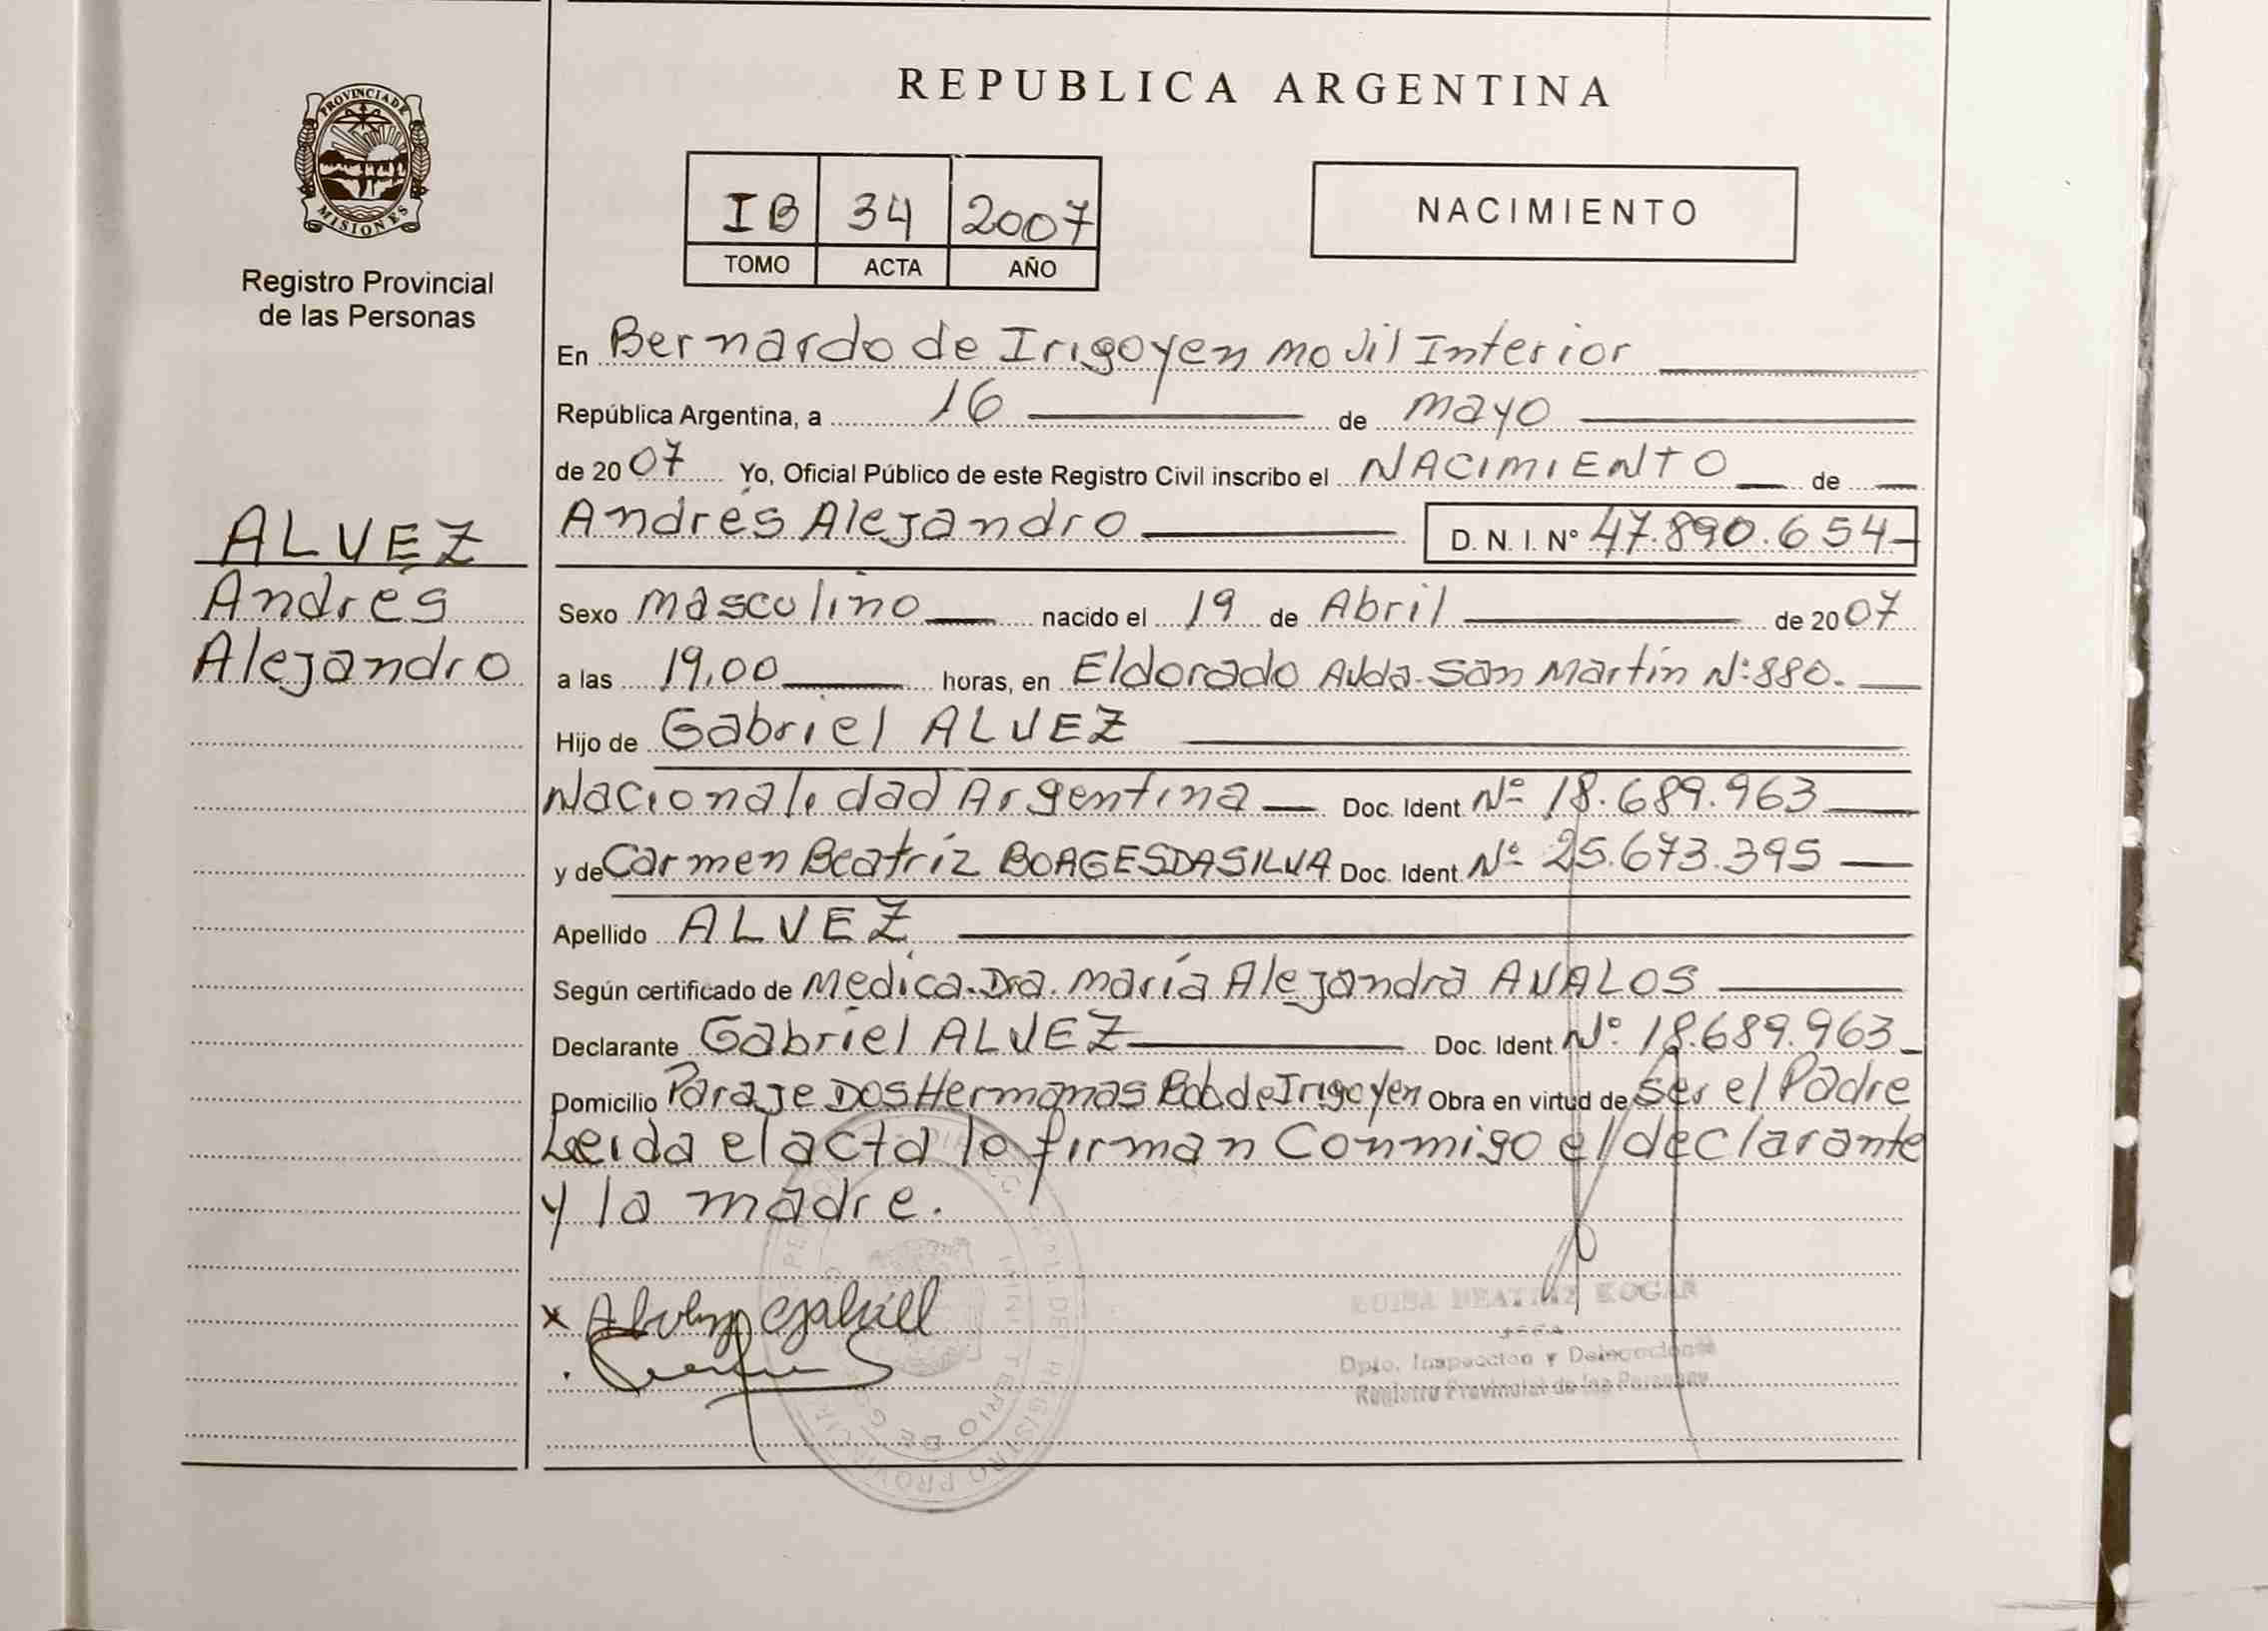 REPUBLICA ARGENTINA
PROVINCIA DE MISIONES
Registro Provincial
de las Personas
IB 34 2007
TOMO ACTA AÑO
NACIMIENTO
En Bernardo de Irigoyen movil Interior
República Argentina, a 16 de mayo
de 2007 Yo, Oficial Público de este Registro Civil inscribo el NACIMIENTO de
Andrés Alejandro D. N. I. Nº 47.890.654
ALVEZ
Andrés
Alejandro
Sexo masculino nacido el 19 de Abril de 2007
a las 19,00 horas, en Eldorado Avda. San Martín Nº 880.
Hijo de Gabriel ALVEZ
Nacionalidad Argentina Doc. Ident. Nº 18.689.963
y de Carmen Beatríz BORGES DA SILVA Doc. Ident. Nº 25.673.395
Apellido ALVEZ
Según certificado de Médica. Dra. María Alejandra AVALOS
Declarante Gabriel ALVEZ Doc. Ident. Nº 18.689.963
Domicilio Paraje Dos Hermanas de Irigoyen Obra en virtud de ser el Padre
Leida el acta lo firman Conmigo el declarante
y la madre.
x Alvez Gabriel
LUISA BEATRIZ KOGAN
JEFA
Dpto. Inspeccion y Delegaciones
Registro Provincial de las Personas